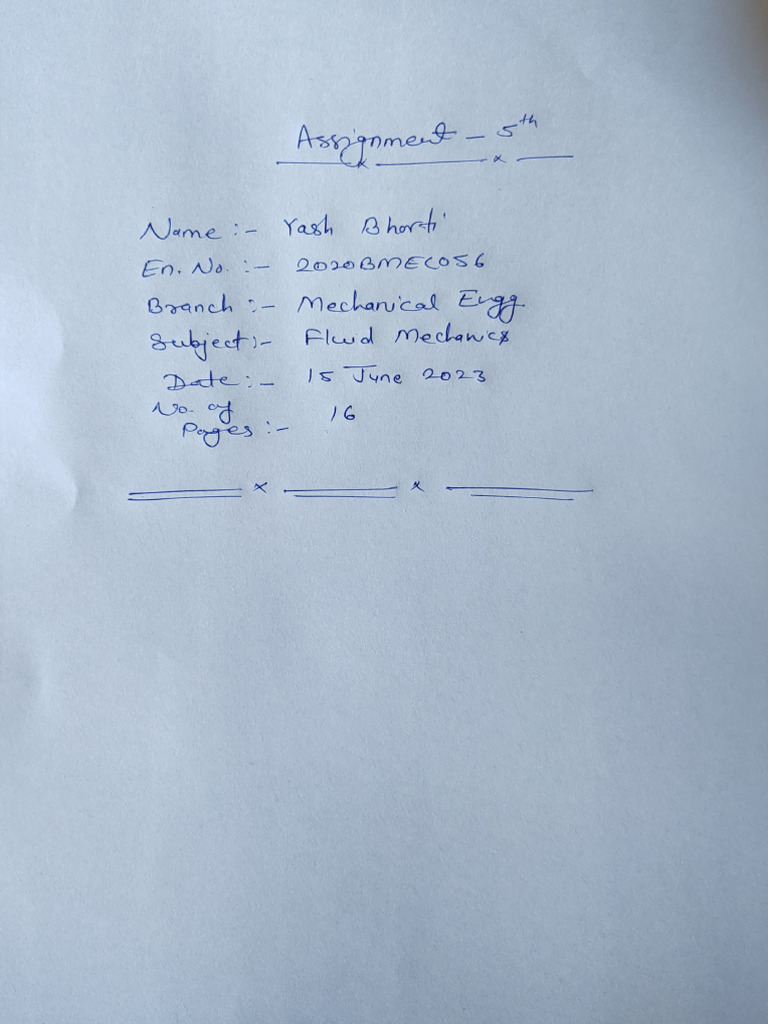 Assignment - 5th
Name :- Yash Bharti
En. No. :- 2020BMEC056
Branch :- Mechanical Engg.
Subject :- Fluid Mechanics
Date :- 15 June 2023
No. of
Pages :- 16